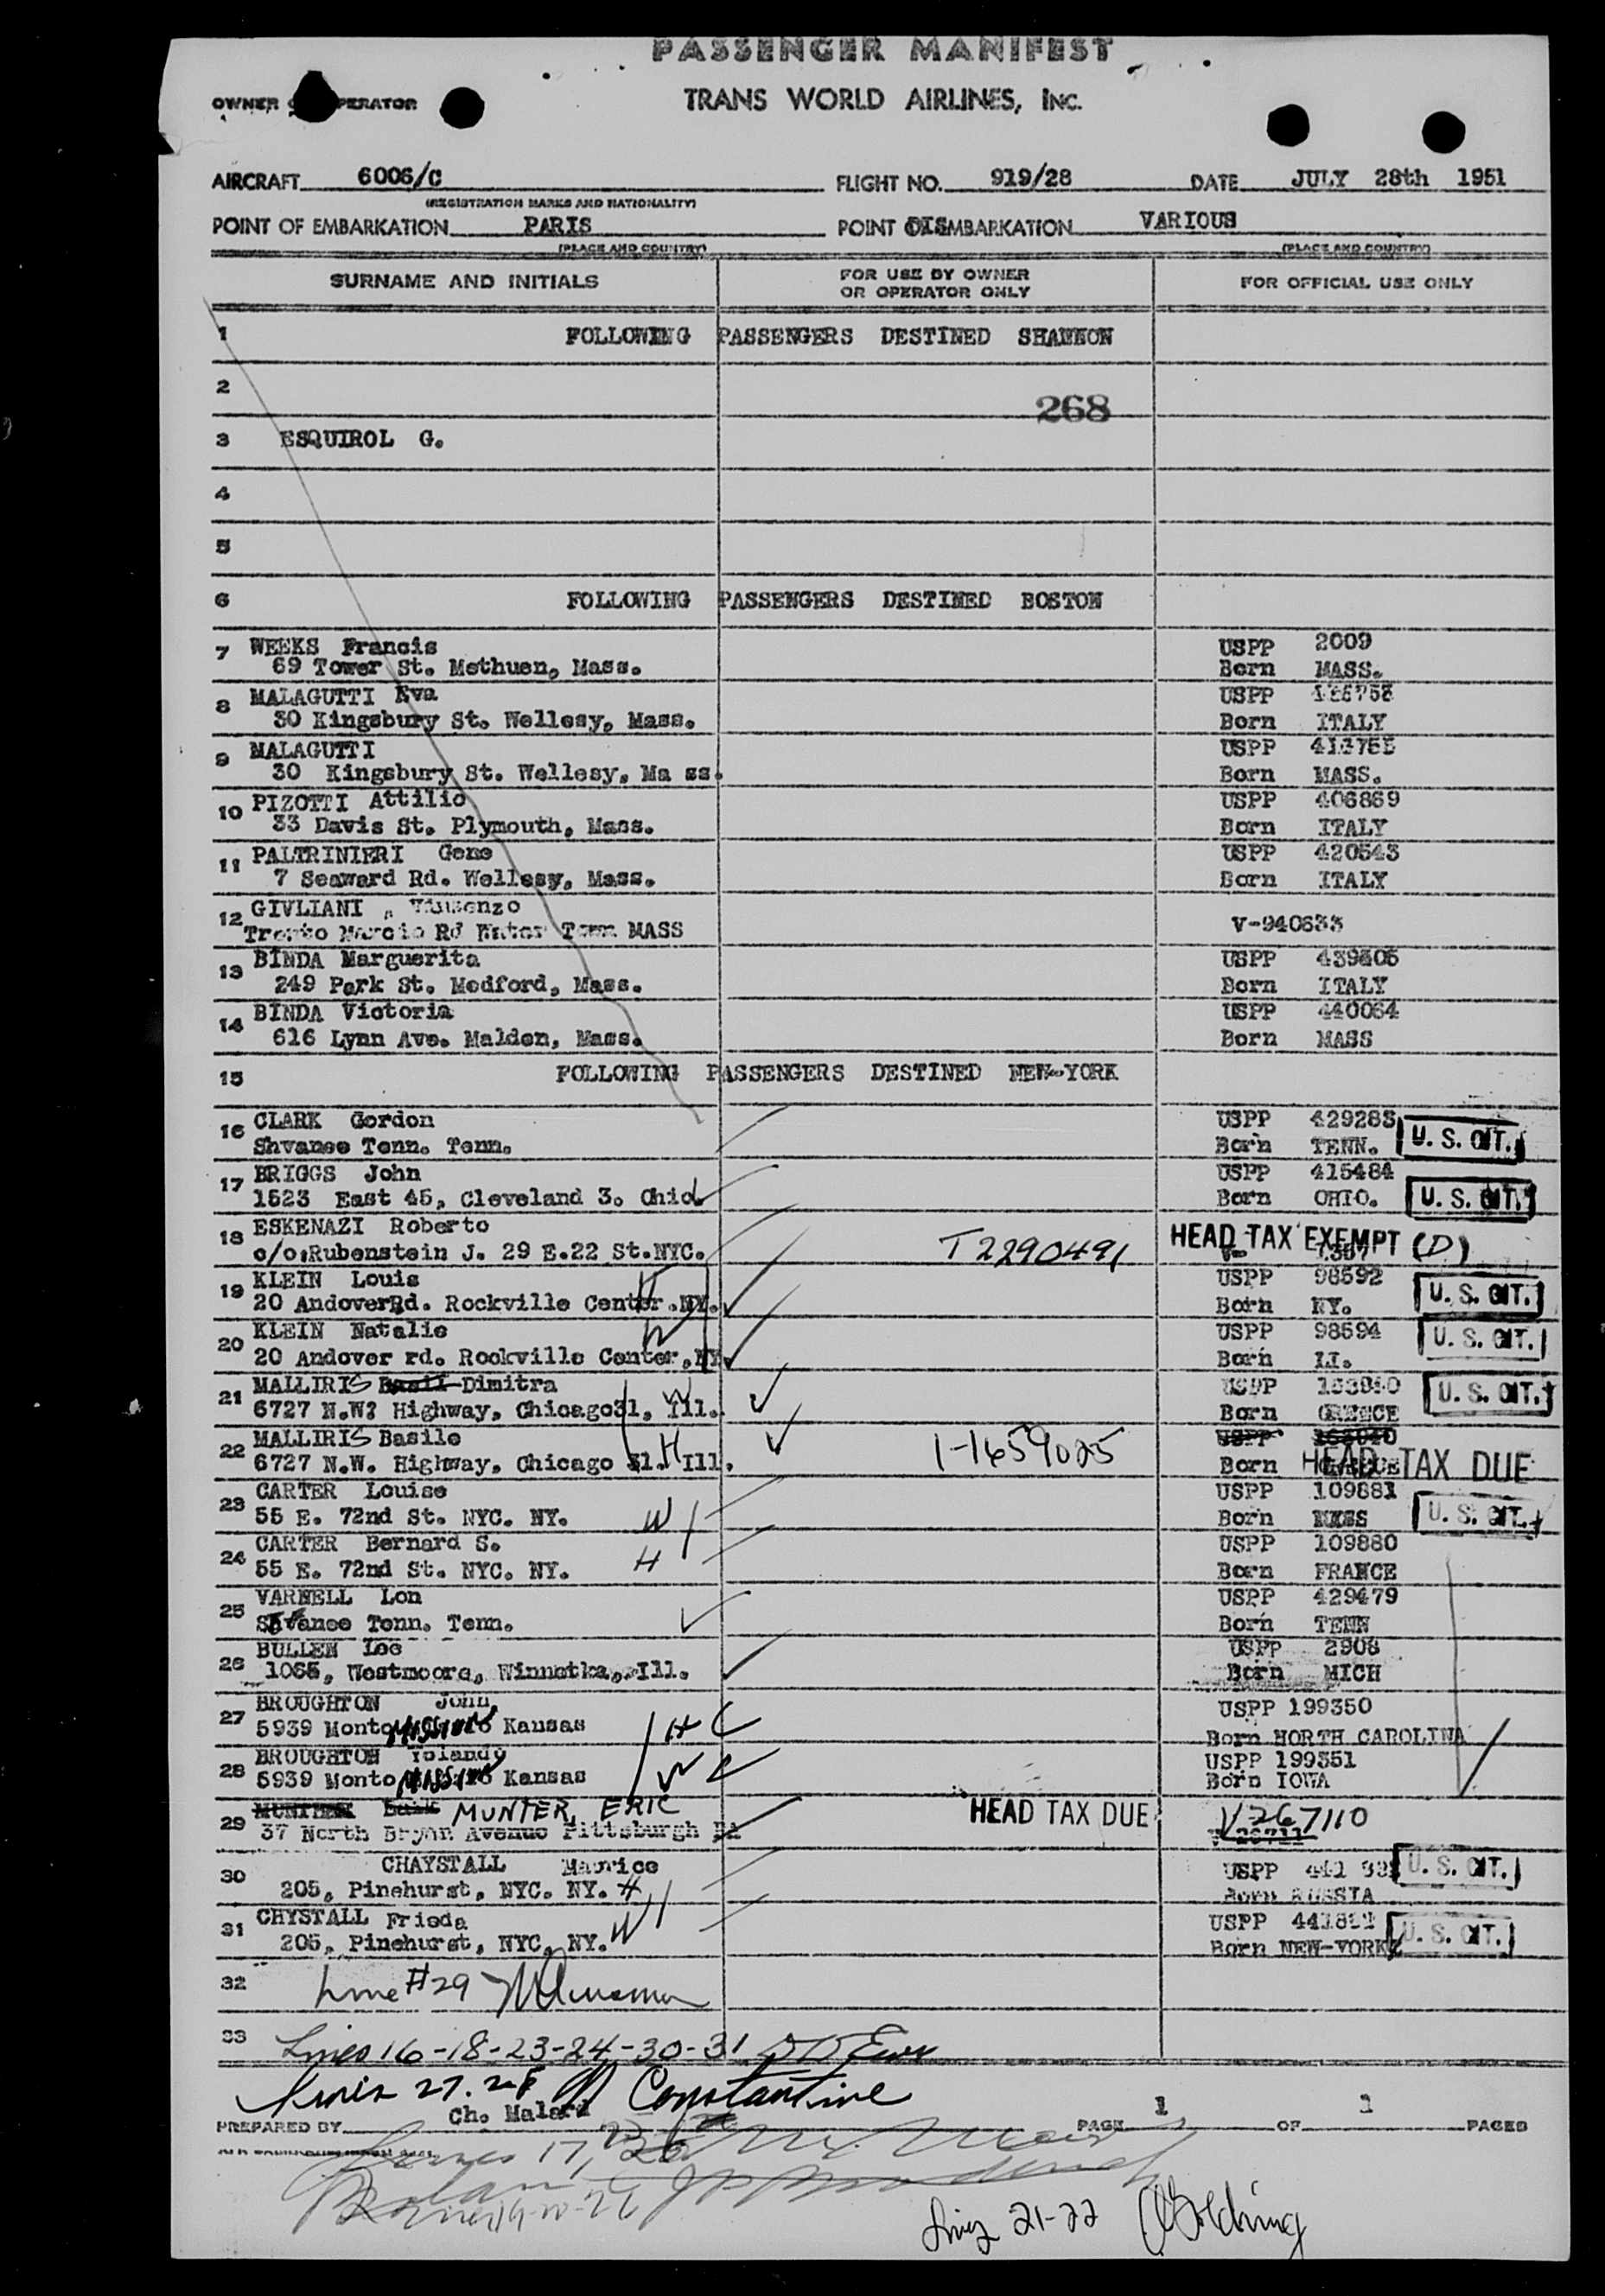 PASSENGER MANIFEST
OWNER PERATOR
TRANS WORLD AIRLINES, INC.
AIRCRAFT 6006/C FLIGHT NO. 919/28 DATE JULY 28th 1951
(REGISTRATION MARKS AND NATIONALITY)
POINT OF EMBARKATION PARIS POINT DISMBARKATION VARIOUS
(PLACE AND COUNTRY) (PLACE AND COUNTRY)
SURNAME AND INITIALS FOR USE BY OWNER OR OPERATOR ONLY FOR OFFICIAL USE ONLY
1 FOLLOWING PASSENGERS DESTINED SHANNON
2
268
3 ESQUIROL G.
4
5
6 FOLLOWING PASSENGERS DESTINED BOSTON
7 WEEKS Francis USPP 2009
69 Tower St. Methuen, Mass. Born MASS.
8 MALAGUTTI Eva USPP
30 Kingsbury St. Wellesy, Mass. Born ITALY
9 MALAGUTTI USPP
30 Kingsbury St. Wellesy, Ma ss. Born MASS.
10 PIZOTTI Attilio USPP 406869
33 Davis St. Plymouth, Mass. Born ITALY
11 PALTRINIERI Gene USPP 420543
7 Seaward Rd. Wellesy, Mass. Born ITALY
12 GIVLIANI , V-940633
Rd Water Town MASS
13 BINDA Marguerita USPP
249 Park St. Medford, Mass. Born ITALY
14 BINDA Victoria USPP 440064
616 Lynn Ave. Malden, Mass. Born MASS
15 FOLLOWING PASSENGERS DESTINED NEW-YORK
16 CLARK Gordon USPP 429283 U. S. CIT.
Shvanee Tenn. Tenn. Born TENN.
17 BRIGGS John USPP 415484
1523 East 45, Cleveland 3. Ohio. Born OHIO. U. S. CIT.
18 ESKENAZI Roberto T2290491 HEAD TAX EXEMPT (D)
c/o:Rubenstein J. 29 E.22 St.NYC. V-
19 KLEIN Louis USPP 98592 U. S. CIT.
20 AndoverRd. Rockville Center.NY. H Born NY.
20 KLEIN Natalie W USPP 98594 U. S. CIT.
20 Andover rd. Rockville Center.NY Born
21 MALLIRIS Basil Dimitra W USPP U. S. CIT.
6727 N.W? Highway, Chicago31, Ill. Born GREECE
22 MALLIRIS Basile 1-1659025 USPP
6727 N.W. Highway, Chicago 31. Ill. H Born HEAD TAX DUE
23 CARTER Louise USPP 109881
55 E. 72nd St. NYC. NY. W Born U. S. CIT.
24 CARTER Bernard S. USPP 109880
55 E. 72nd St. NYC. NY. H Born FRANCE
25 VARNELL Lon USPP 429479
Sevanee Tenn. Tenn. Born TENN
26 BULLEN Lee USPP 2908
1065, Westmoore, Winnetka, Ill. Born MICH
27 BROUGHTON John USPP 199350
5939 Monto MISSION Kansas H C Born NORTH CAROLINA
28 BROUGHTON Yolandy USPP 199351
5939 Monto MISSION Kansas W C Born IOWA
29 MUNTER, ERIC HEAD TAX DUE V267110
37 North Bryan Avenue Pittsburgh PA
30 CHAYSTALL Maurice USPP U. S. CIT.
205, Pinehurst, NYC. NY. H Born RUSSIA
31 CHYSTALL Frieda USPP U. S. CIT.
205, Pinehurst, NYC. NY. W Born NEW-YORK
32 Line #29
33 Lines 16-18-23-24-30-31
Lines 27.28 Constantine
PREPARED BY Ch. Malard PAGE 1 OF 1 PAGES
Lines 17,
Lines 21-22 Golding